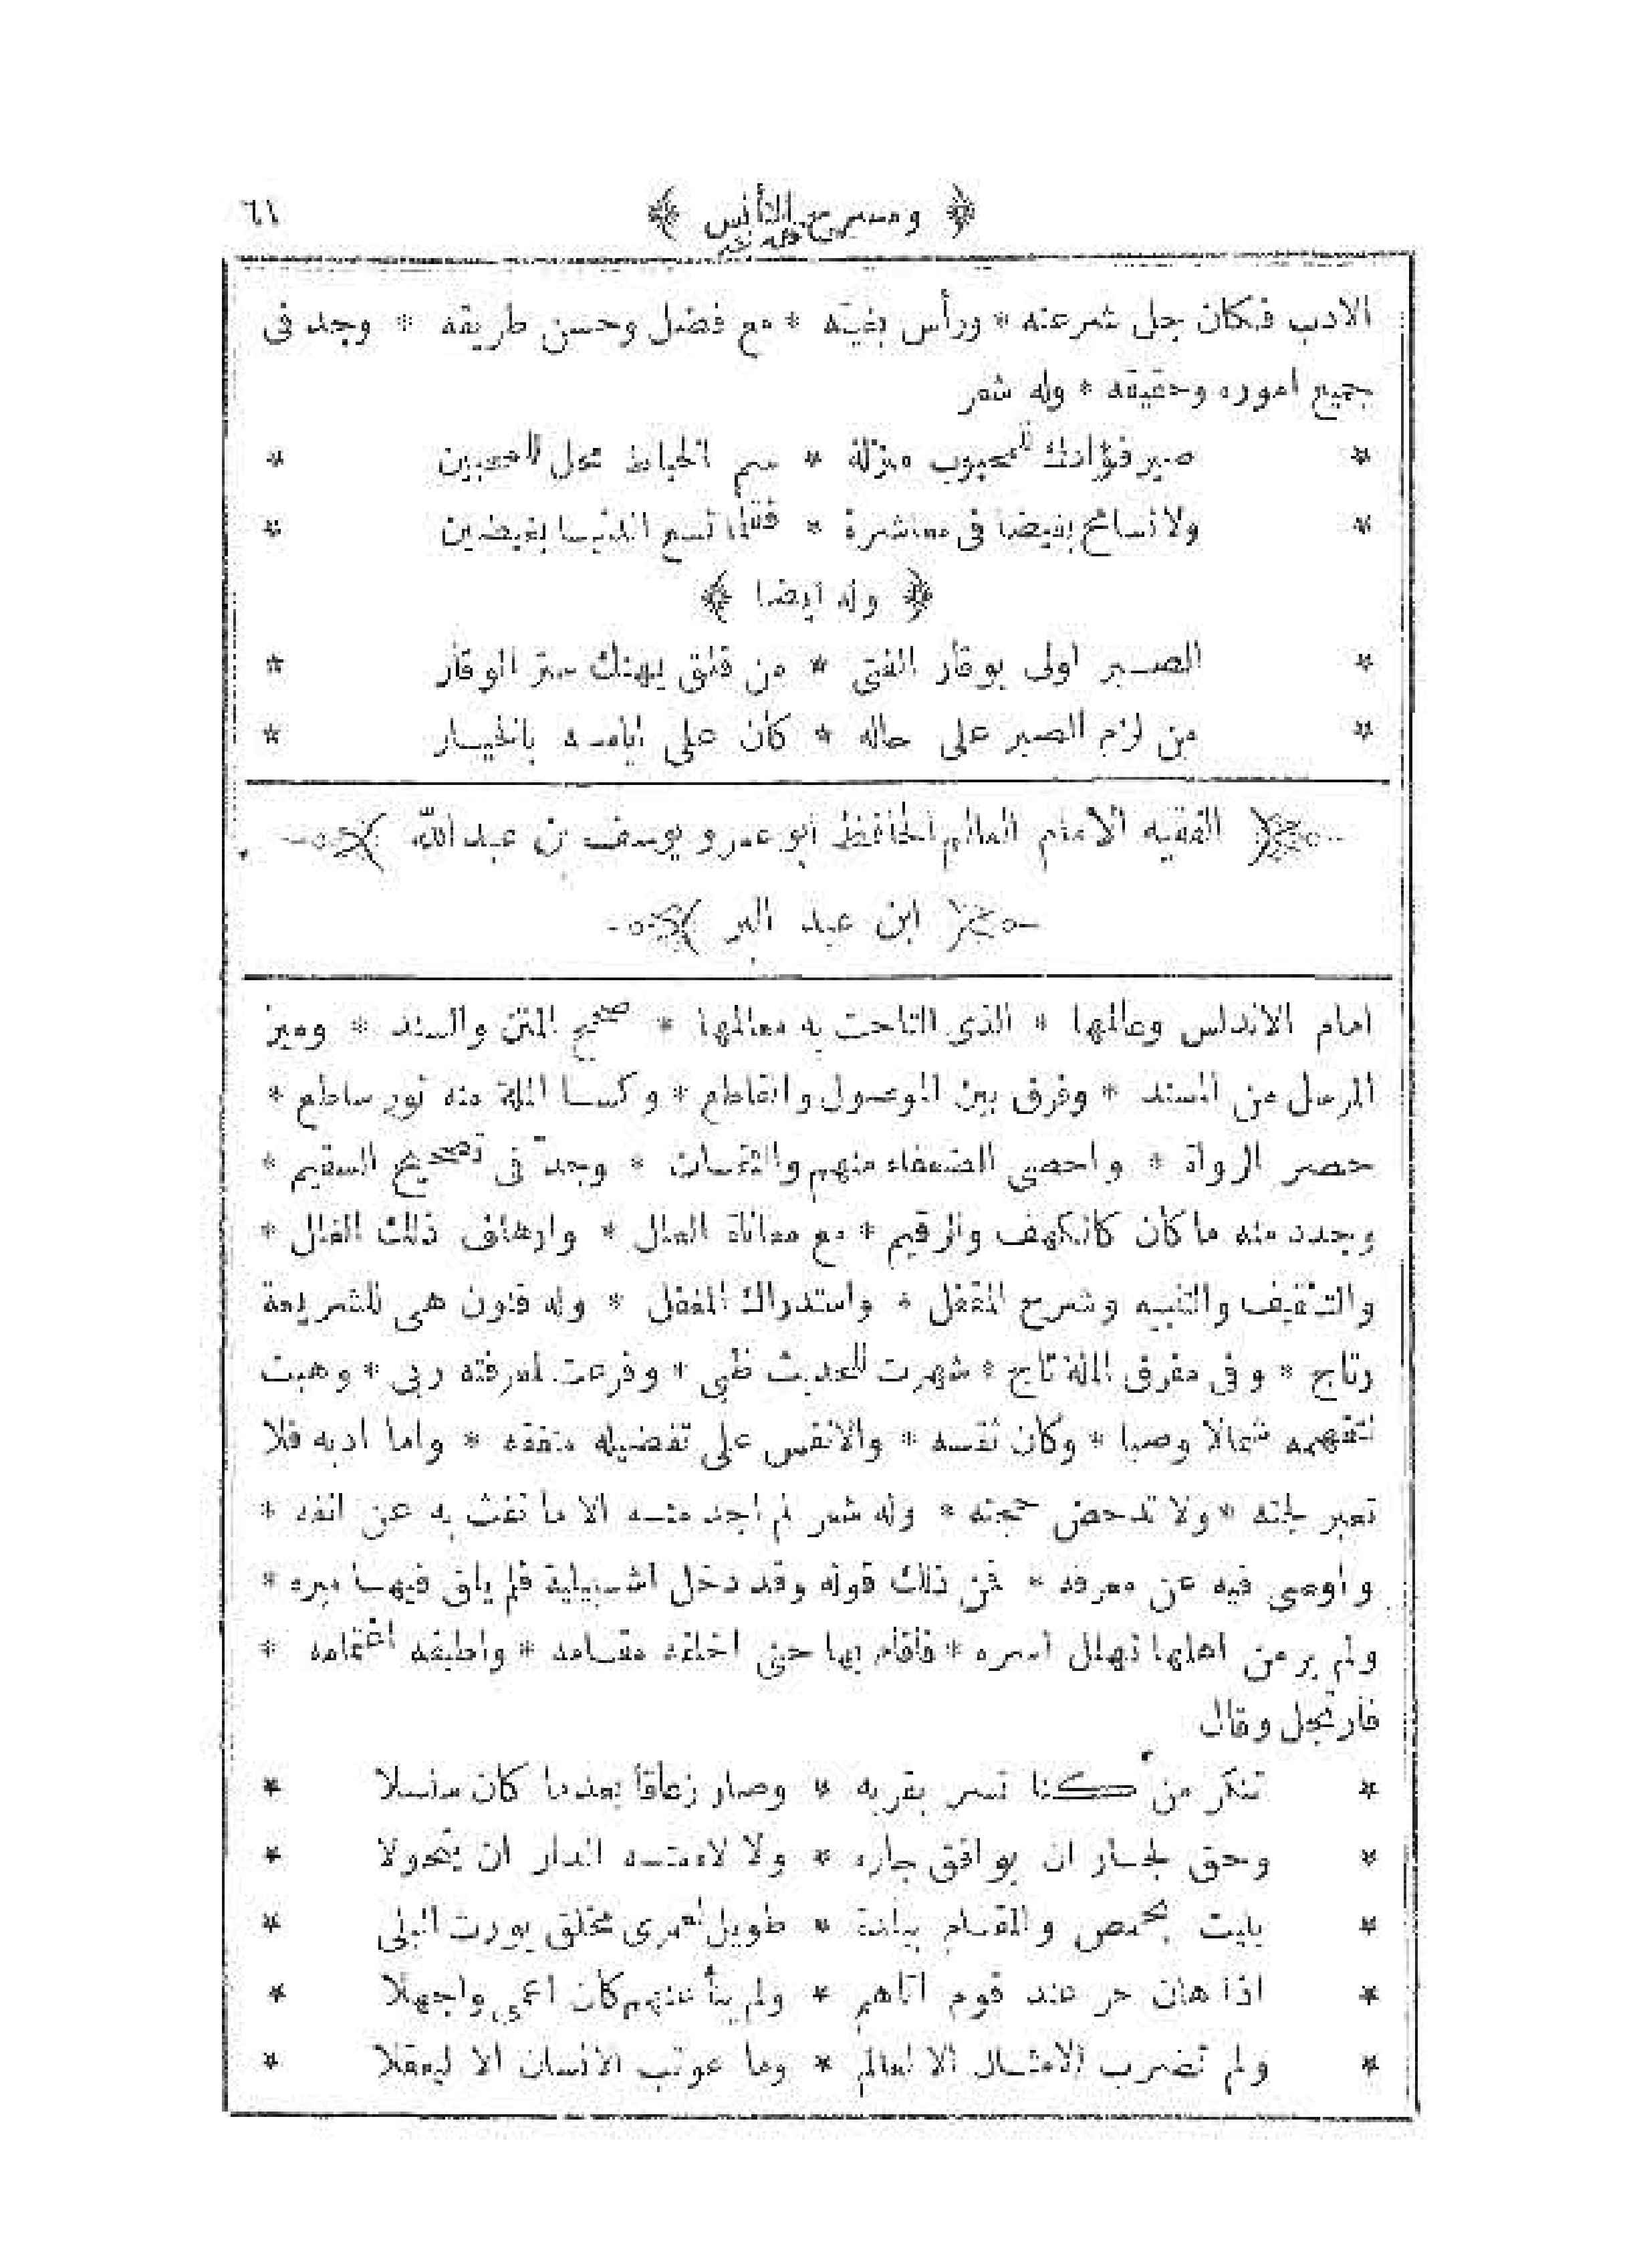 ﴿ ومسرح التأنس ﴾ ٦١
الادب فكان جل شرعته * ورأس بغيته * مع فضل وحسن طريقه * وجد فى
جميع اموره وحقيقه * وله شعر
* صير فؤادك للمحبوب منزلة * سم الخياط محل للمحبين *
* ولا تسامح بغيضا فى معاشرة * فقلما تسع الدنيا بغيضين *
﴿ وله ايضا ﴾
* الصبر اولى بوقار الفتى * من قلق يهتك ستر الوقار *
* من لزم الصبر على حاله * كان على ايامه بالخيار *
﴿ الفقيه الامام العالم الحافظ ابو عمرو يوسف بن عبد الله ﴾
﴿ ابن عبد البر ﴾
امام الاندلس وعالمها * الذى التاحت به معالمها * صحيح المتن والسند * وميز
المرسل من المسند * وفرق بين الموصول والقاطع * وكسا الملة منه نور ساطع *
حصر الرواة * واحصى الضعفاء منهم والثقات * وجدّ فى تصحيح السقيم *
وجدد منه ما كان كالكهف والرقيم * مع معاناة العلل * وارهاف ذلك الغلل *
والتثقيف والتنبيه وشرح المقفل * واستدراك المغفل * وله فنون هى للشريعة
رتاج * وفى مفرق الملة تاج * شهرت للحديث ظبى * وفرعت لمعرفته ربى * وهبت
لتفهمه شمالا وصبا * وكان ثقسه * والانفس على تفضيله متفقه * واما ادبه فلا
تعبر لجته * ولا تدحض حجته * وله شعر لم اجد منه الا ما نفث به عن انفه *
واوصى فيه عن معرفه * فمن ذلك قوله وقد دخل اشبيلية فلم يلق فيها مبره *
ولم ير من اهلها تهلل اسره * فاقام بها حتى اخلقه مقامه * واطبقه اغتمامه *
فارتجل وقال
* تنكر من كنا نسر بقربه * وصار زعاقا بعدما كان سلسلا *
* وحق لجار ان يوافق جاره * ولا لامته الدار ان يتحولا *
* بليت بحمص والمقام ببلدة * طويل لعمرى مخلق يورث البلى *
* اذا هان حر عند قوم اتاهم * ولم ينأ عنهم كان اعمى واجهلا *
* ولم تضرب الامثال الا لعالم * وما عوتب الانسان الا ليعقلا *